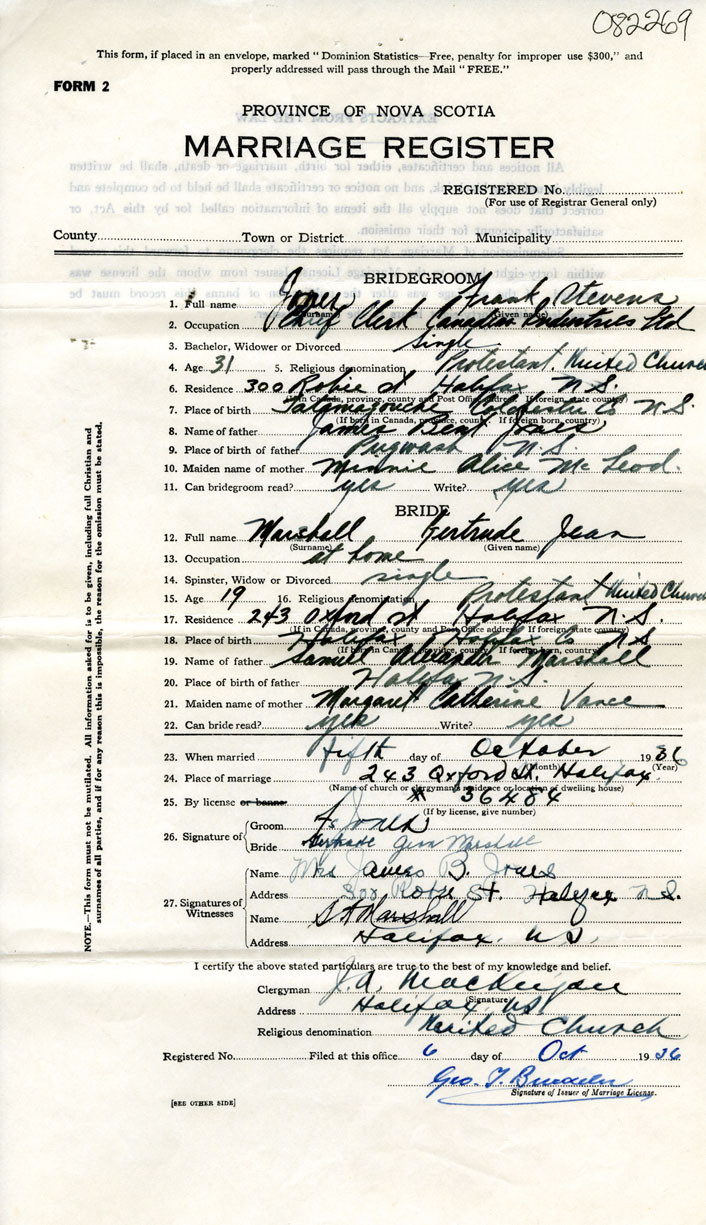 082269
This form, if placed in an envelope, marked "Dominion Statistics—Free, penalty for improper use $300," and
properly addressed will pass through the Mail "FREE."
FORM 2
PROVINCE OF NOVA SCOTIA
MARRIAGE REGISTER
REGISTERED No.
(For use of Registrar General only)
County Town or District Municipality
BRIDEGROOM
1. Full name Jones Frank Stevens
(Surname) (Given name)
2. Occupation Chief Clerk Industries Ltd
3. Bachelor, Widower or Divorced single
4. Age 31 5. Religious denomination Protestant United Church
6. Residence 300 Robie st Halifax N.S.
(If in Canada, province, county and Post Office address If foreign, state county)
7. Place of birth Tatamagouche Colchester Co N.S.
(If born in Canada, province, county. If foreign born, country)
8. Name of father James Bent Jones
9. Place of birth of father Pugwash N.S.
10. Maiden name of mother Minnie Alice McLeod.
11. Can bridegroom read? yes Write? yes
BRIDE
12. Full name Marshall Gertrude Jean
(Surname) (Given name)
13. Occupation at home
14. Spinster, Widow or Divorced single
15. Age 19 16. Religious denomination Protestant United Church
17. Residence 243 Oxford st Halifax N.S.
(If in Canada, province, county and Post Office address If foreign state country)
18. Place of birth Halifax Halifax Co N S
(If born in Canada, province, county. If foreign born, country)
19. Name of father Samuel Alexander Marshall
20. Place of birth of father Halifax N.S.
21. Maiden name of mother Margaret Catherine Vance
22. Can bride read? yes Write? yes
23. When married fifth day of October 1936
(Month) (Year)
24. Place of marriage 243 Oxford St. Halifax.
(Name of church or clergyman's residence or location of dwelling house)
25. By license or banns # 36484
(If by license, give number)
26. Signature of Groom F S Jones
Bride Gertrude Jean Marshall
27. Signatures of Witnesses
Name Mrs James B. Jones
Address 300 Robie St. Halifax N.S.
Name S A Marshall
Address Halifax, N.S.
I certify the above stated particulars are true to the best of my knowledge and belief.
Clergyman J.A.
(Signature)
Address Halifax, N.S.
Religious denomination United Church
Registered No. Filed at this office 6 day of Oct 1936
Geo. T.
Signature of Issuer of Marriage License.
[SEE OTHER SIDE]
NOTE.—This form must not be mutilated. All information asked for is to be given, including full Christian and
surnames of all parties, and if for any reason this is impossible, the reason for the omission must be stated.